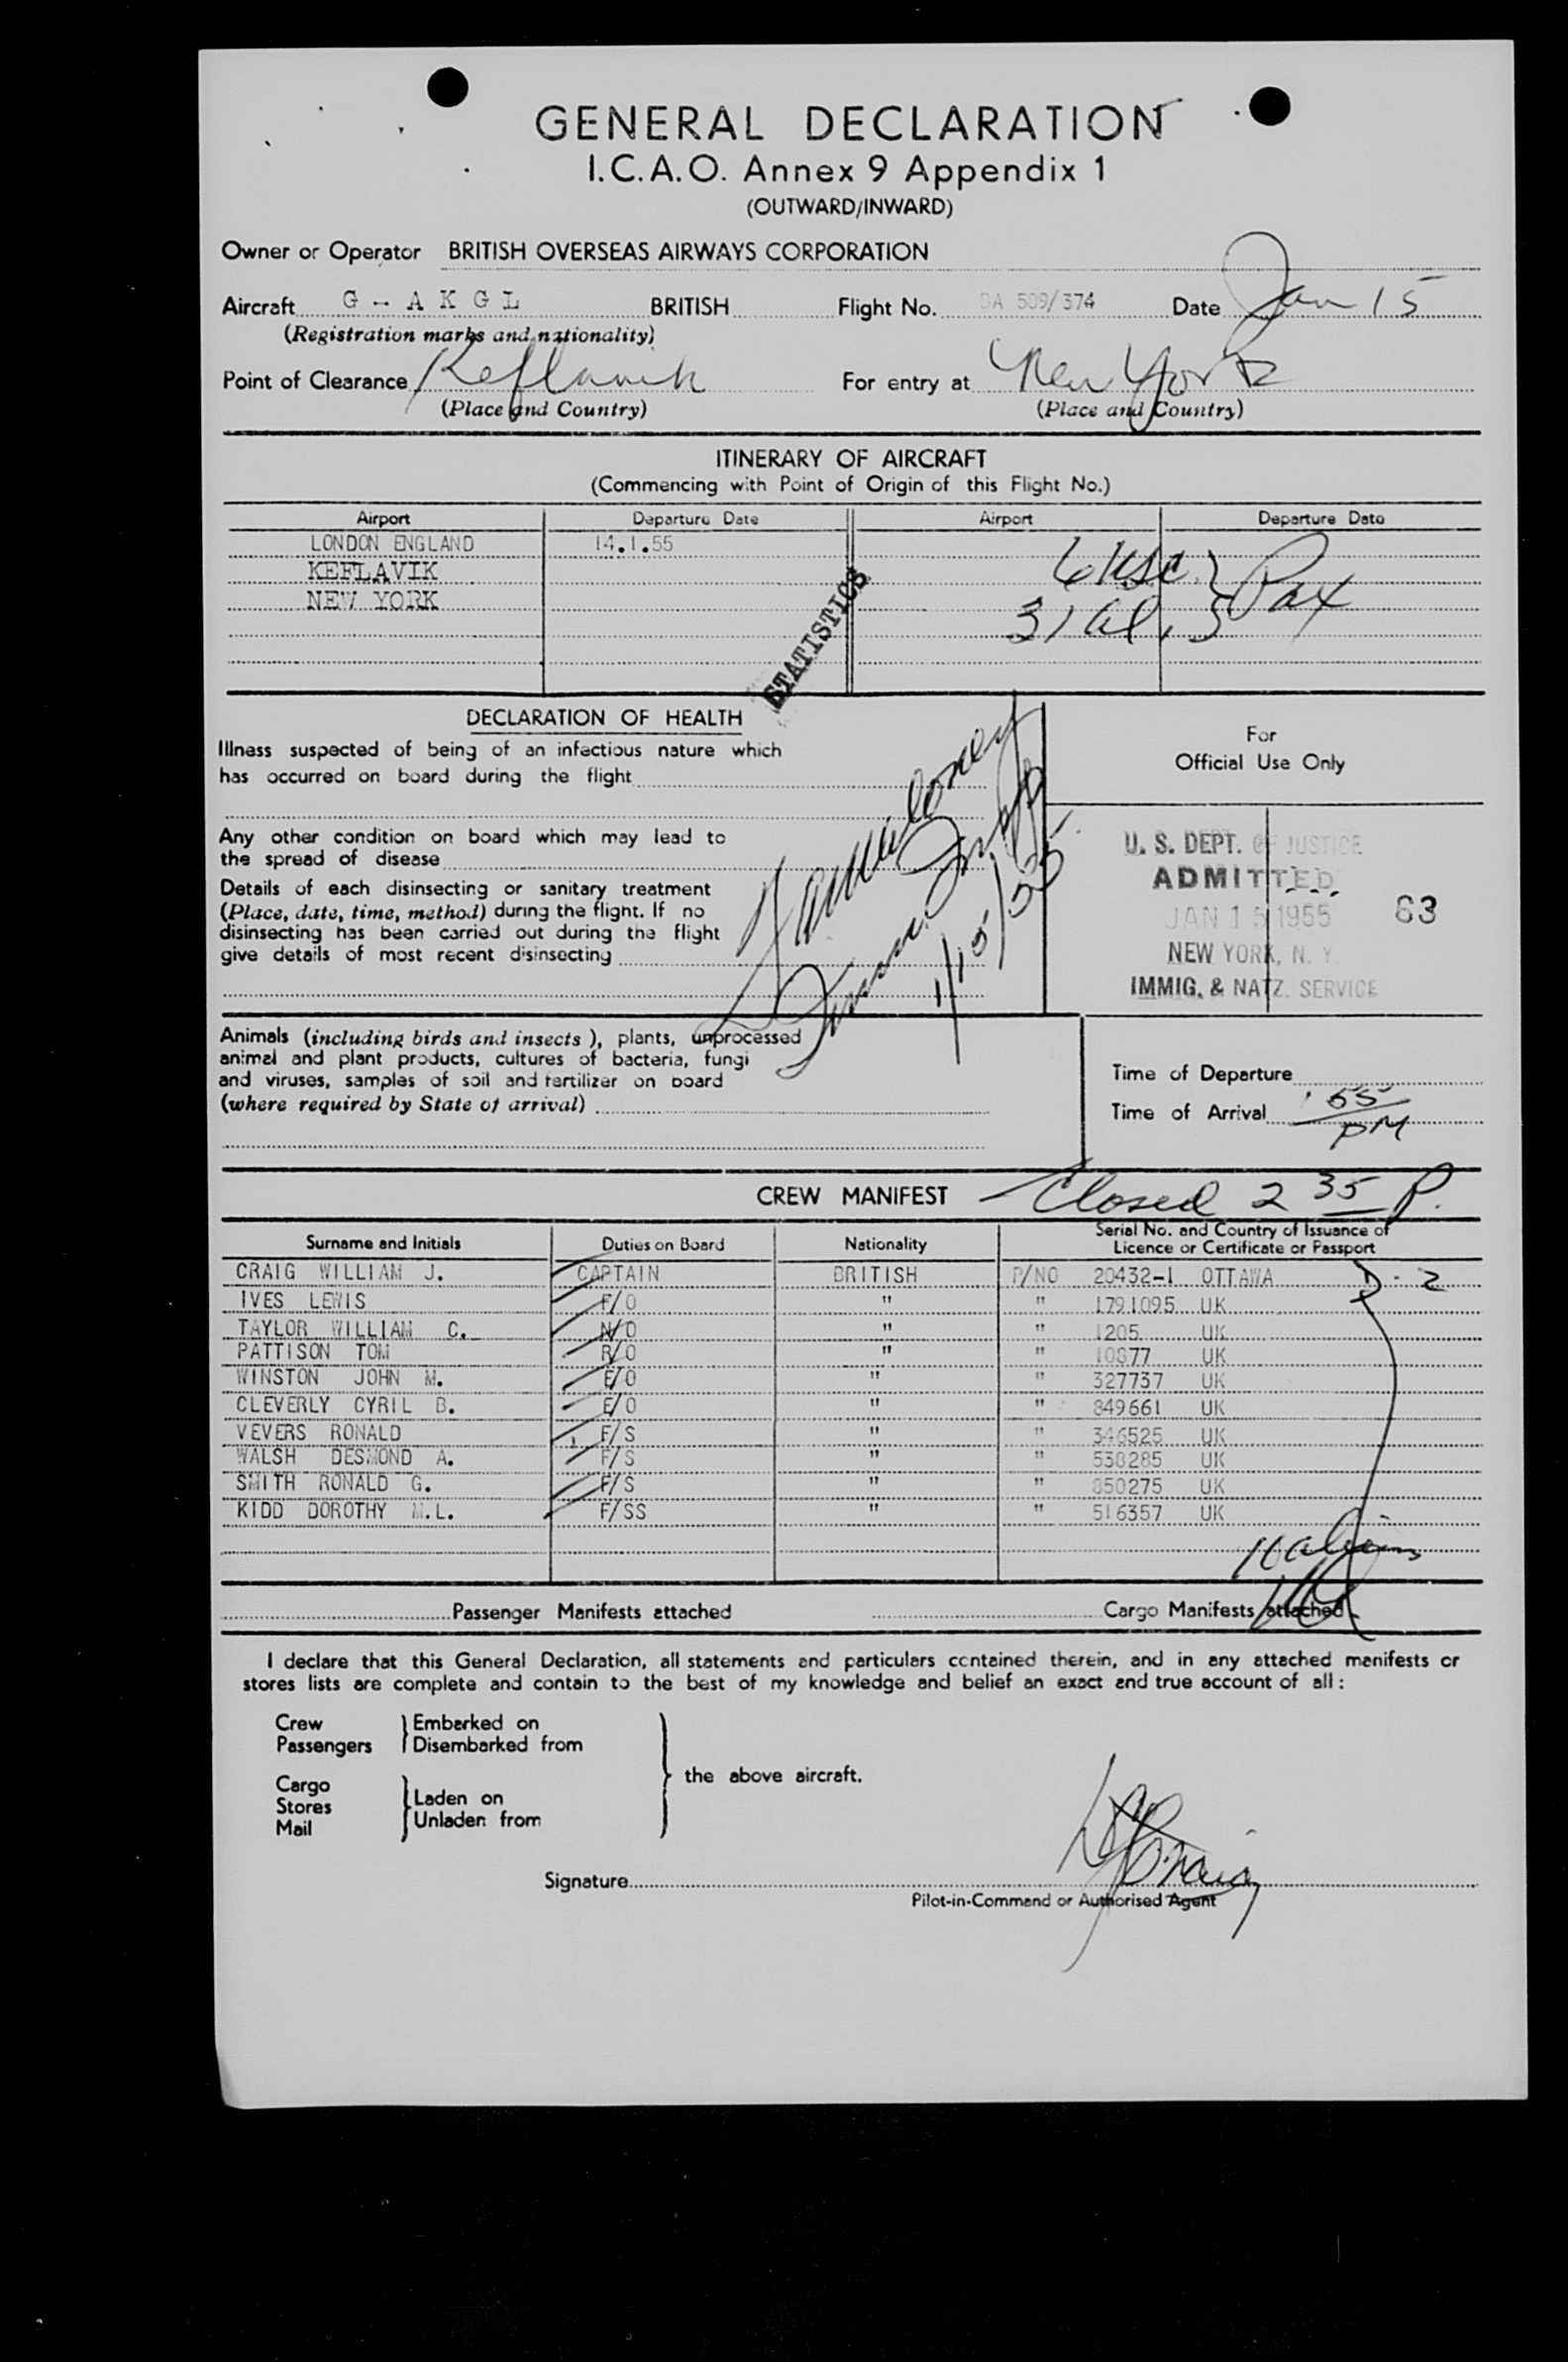 GENERAL DECLARATION
I.C.A.O. Annex 9 Appendix 1
(OUTWARD/INWARD)
Owner or Operator BRITISH OVERSEAS AIRWAYS CORPORATION
Aircraft G - A K G L BRITISH Flight No. BA 509/374 Date Jan 15
(Registration marks and nationality)
Point of Clearance Keflavik For entry at New York
(Place and Country) (Place and Country)
ITINERARY OF AIRCRAFT
(Commencing with Point of Origin of this Flight No.)
Airport Departure Date Airport Departure Date
LONDON ENGLAND 14.1.55
KEFLAVIK 6 USC
NEW YORK 31 al. Pax
STATISTICS
DECLARATION OF HEALTH
Illness suspected of being of an infectious nature which
has occurred on board during the flight
For
Official Use Only
Any other condition on board which may lead to
the spread of disease
Details of each disinsecting or sanitary treatment
(Place, date, time, method) during the flight. If no
disinsecting has been carried out during the flight
give details of most recent disinsecting
1/15/55
U. S. DEPT. OF JUSTICE
ADMITTED
JAN 15 1955 63
NEW YORK, N. Y.
IMMIG. & NATZ. SERVICE
Animals (including birds and insects), plants, unprocessed
animal and plant products, cultures of bacteria, fungi
and viruses, samples of soil and fertilizer on board
(where required by State of arrival)
Time of Departure
Time of Arrival 1 55 PM
CREW MANIFEST Closed 2 35 P.
Surname and Initials Duties on Board Nationality Serial No. and Country of Issuance of Licence or Certificate or Passport
CRAIG WILLIAM J. CAPTAIN BRITISH P/NO 20432-1 OTTAWA D-2
IVES LEWIS F/O " " 1791095 UK
TAYLOR WILLIAM C. N/O " " 1205 UK
PATTISON TOM R/O " " 10877 UK
WINSTON JOHN M. E/O " " 327737 UK
CLEVERLY CYRIL B. E/O " " 849661 UK
VEVERS RONALD F/S " " 346525 UK
WALSH DESMOND A. F/S " " 538285 UK
SMITH RONALD G. F/S " " 850275 UK
KIDD DOROTHY M.L. F/SS " " 516357 UK
Passenger Manifests attached Cargo Manifests attached
I declare that this General Declaration, all statements and particulars contained therein, and in any attached manifests or
stores lists are complete and contain to the best of my knowledge and belief an exact and true account of all :
Crew Embarked on
Passengers Disembarked from
the above aircraft.
Cargo
Stores Laden on
Mail Unladen from
Signature WJ Craig
Pilot-in-Command or Authorised Agent